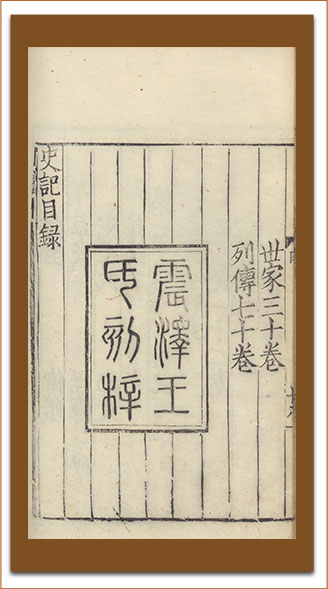 世家三十卷
列傳七十卷
震澤王
氏刻梓
史記目録